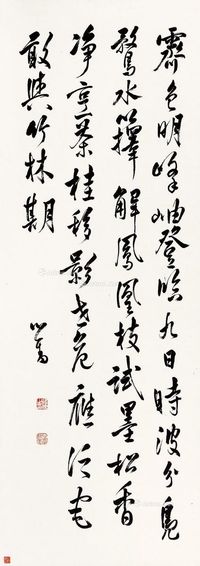 霽色明峰岫登臨九日時波分鳧
鷖水籜解鳳凰枝試墨松香
净烹茶桂移影老應
敢與竹林期
心畬